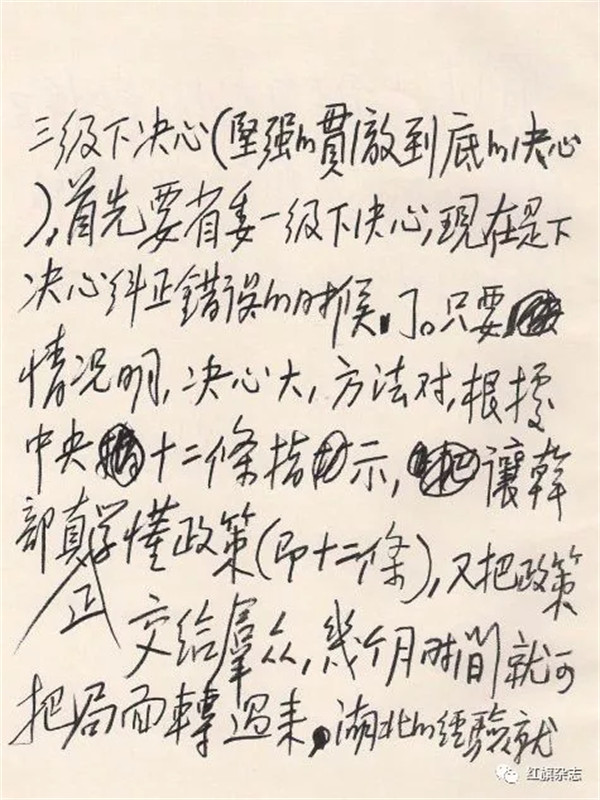 三级下决心(堅强的貫澈到底的决心
),首先要省委一级下决心,現在是下
决心纠正錯误的时候了。只要
情况明,决心大,方法对,根據
中央十二條指示,讓幹
部真正学懂政策(即十二條),又把政策
交给羣众,幾个月时间就可
把局面轉过来,湖北的经驗就
红旗杂志